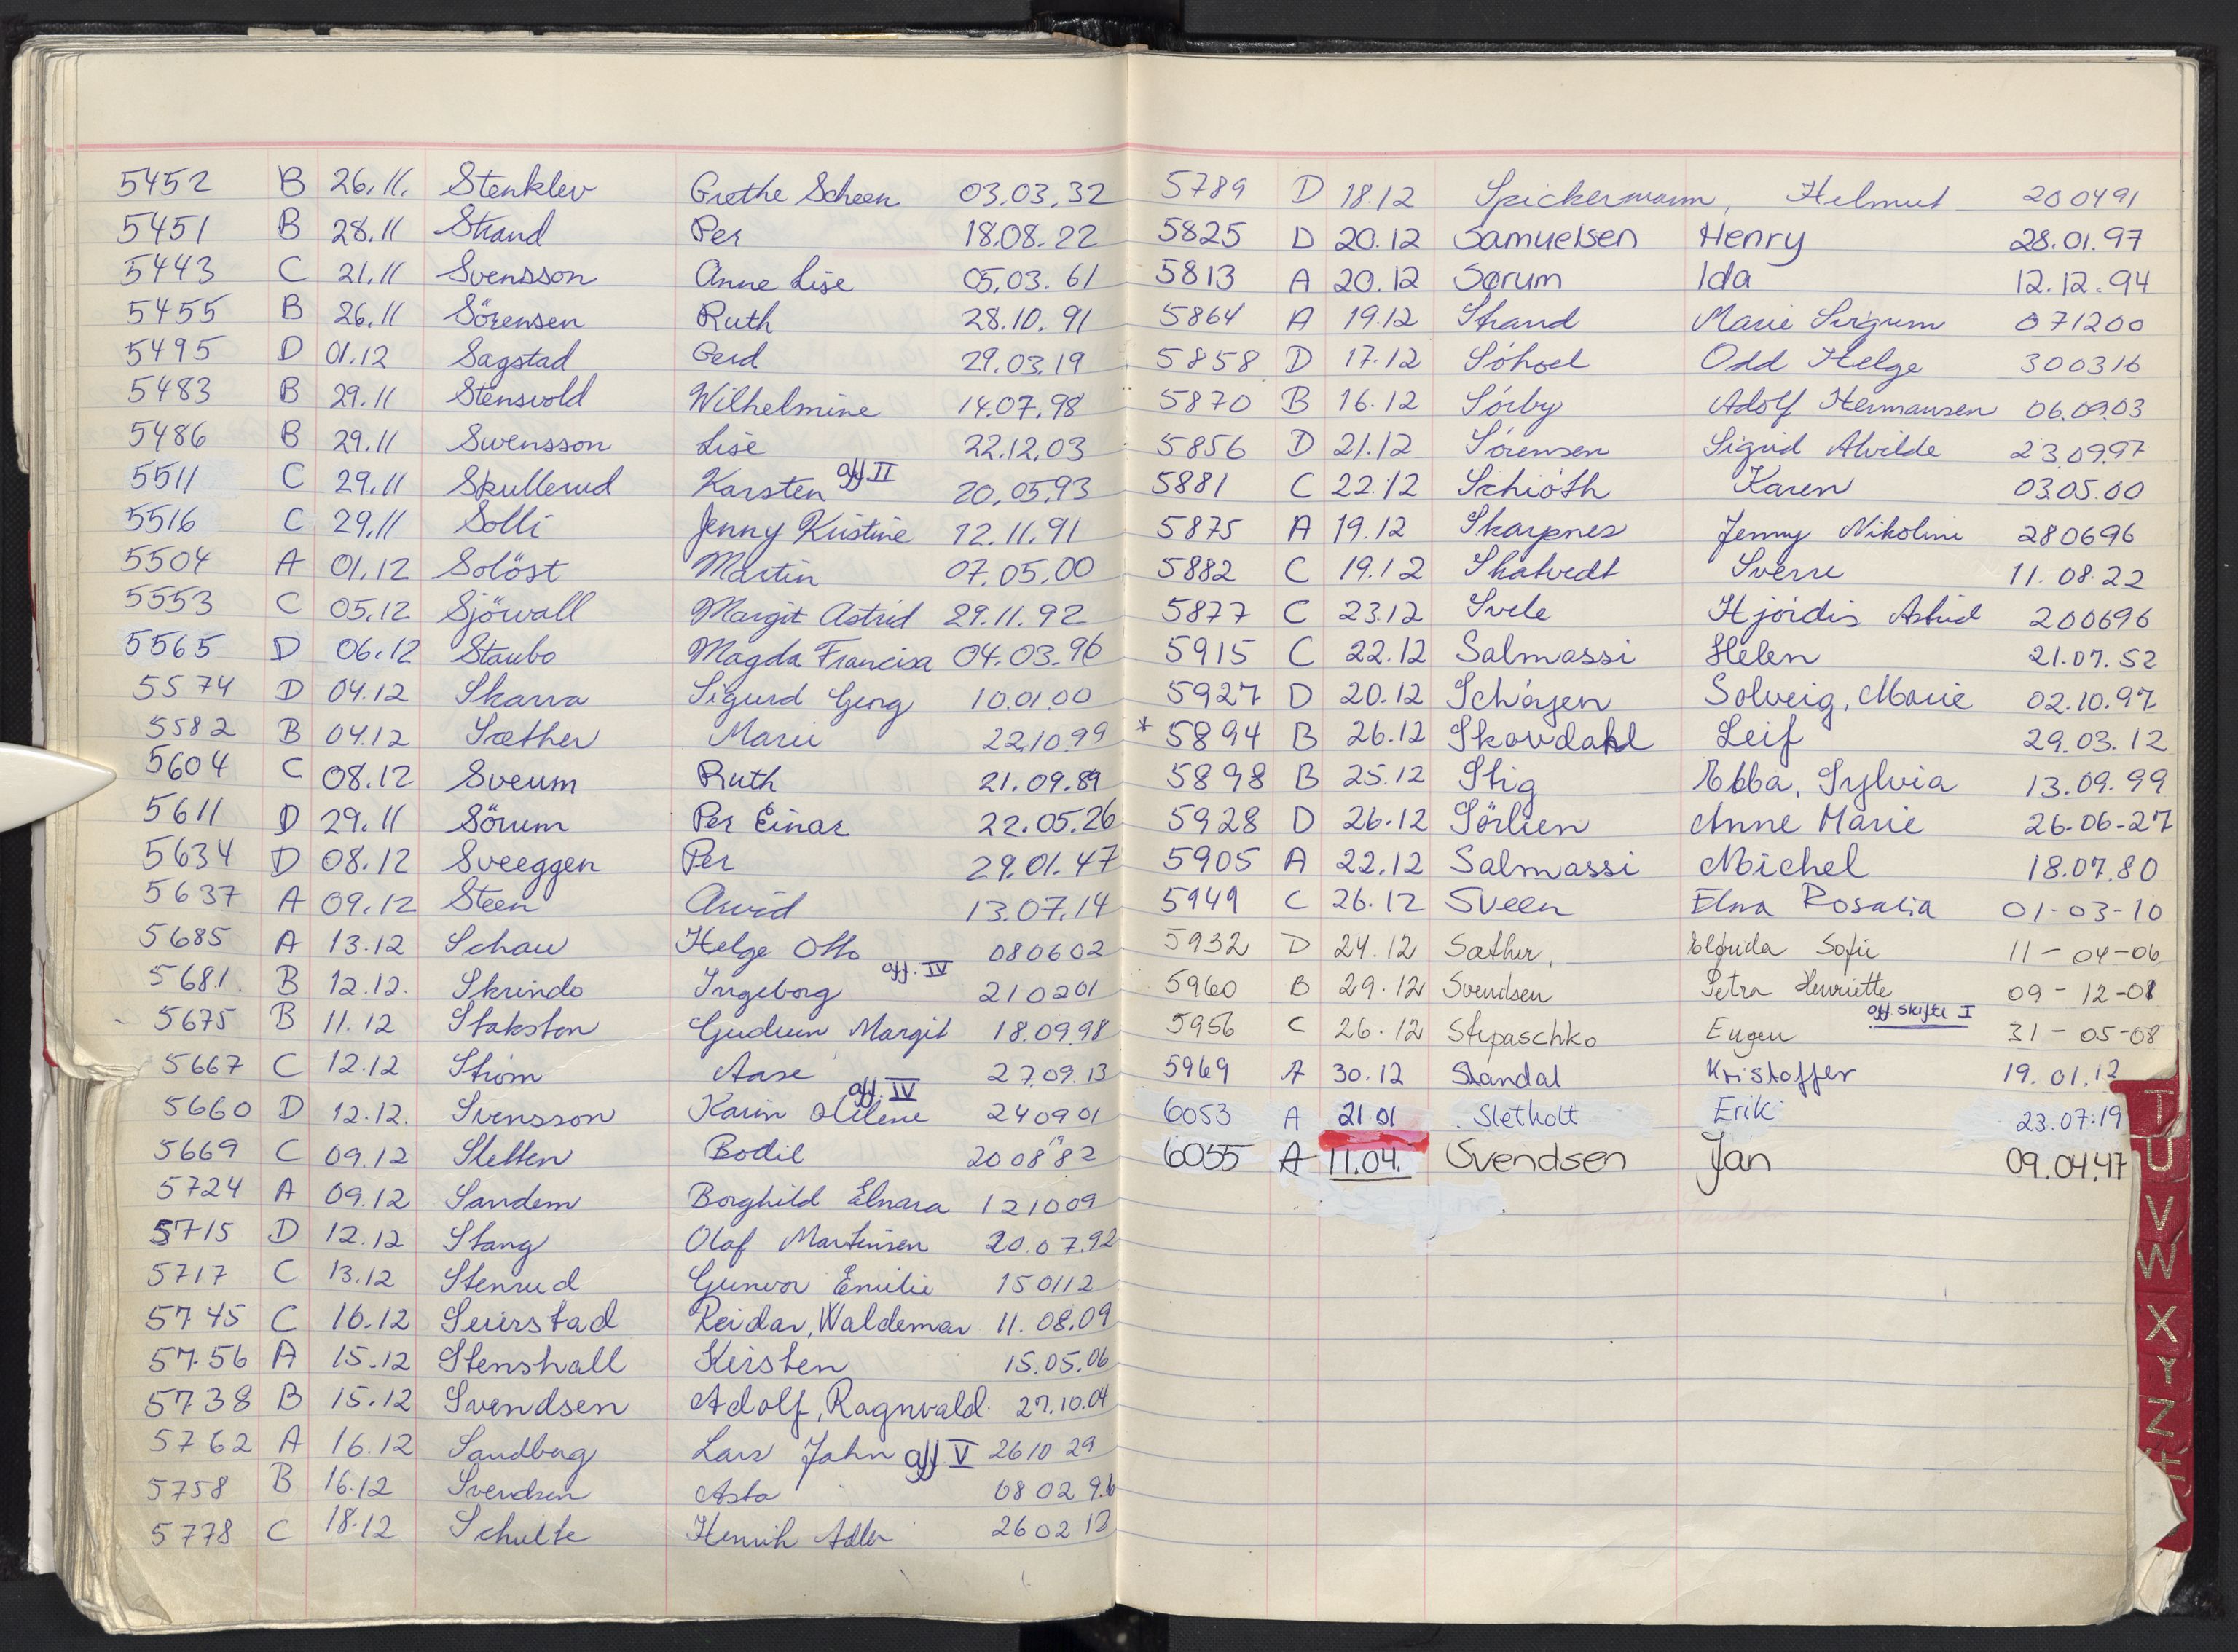 5452 B 26.11. Stenklev Grethe Scheen 03.03.32
5451 B 28.11 Strand Per 18.08.22
5443 C 21.11 Svensson Anne Lise 05.03.61
5455 B 26.11 Sörensen Ruth 28.10.91
5495 D 01.12 Sagstad Gerd 29.03.19
5483 B 29.11 Stensvold Wilhelmine 14.07.98
5486 B 29.11 Swensson Lise 22.12.03
5511 C 29.11 Skullerud Karsten off. II 20.05.93
5516 C 29.11 Solli Jenny Kristine 12.11.91
5504 A 01.12 Solöst Martin 07.05.00
5553 C 05.12 Sjöwall Margit Astrid 29.11.92
5565 D 06.12 Staubo Magda Francisa 04.03.96
5574 D 04.12 Skarra Sigurd Georg 10.01.00
5582 B 04.12 Sæther Marie 22.10.99
5604 C 08.12 Sveum Ruth 21.09.89
5611 D 29.11 Sörum Per Einar 22.05.26
5634 D 08.12 Sveeggen Per 29.01.47
5637 A 09.12 Steen Arvid 13.07.14
5685 A 13.12 Schau Helge Otto 080602
5681. B 12.12. Skrindo Ingeborg off. IV 210201
5675 B 11.12 Stakston Gudrun Margit 18.09.98
5667 C 12.12 Strøm Aase 27.09.13
5660 D 12.12. Svensson Karin Helene off. IV 240901
5669 C 09.12 Sletten Bodil 200882
5724 A 09.12 Sandem Borghild Elnara 121009
5715 D 12.12 Stang Olaf Martinsen 20.07.92
5717 C 13.12 Stenrud Gunvor Emilie 150112
5745 C 16.12 Seierstad Reidar, Waldemar 11.08.09
5756 A 15.12 Stenshall Kirsten 15.05.06
5738 B 15.12 Svendsen Adolf, Ragnvald 27.10.04
5762 A 16.12 Sandberg Lars John off V 261029
5758 B 16.12 Svendsen Asta 08029.6
5778 C 18.12 Schulte Henrik Adler 260213
5789 D 18.12 Spickermann, Helmut 200491
5825 D 20.12 Samuelsen Henry 28.01.97
5813 A 20.12 Sørum Ida 12.12.94
5864 A 19.12 Strand Marie Sigrun 071200
5858 D 17.12 Söhoel Odd Helge 300316
5870 B 16.12 Sörby Adolf Hermansen 06.09.03
5856 D 21.12 Sörensen Sigrid Alvilde 23.09.97
5881 C 22.12 Schiöth Karen 03.05.00
5875 A 19.12 Skarpnes Jenny Nikoline 280696
5882 C 19.12 Skatvedt Sverre 11.08.22
5877 C 23.12 Svele Hjördis Astrid 200696
5915 C 22.12 Salmassi Helen 21.07.52
5927 D 20.12 Schöyen Solveig, Marie 02.10.97
* 5894 B 26.12 Skovdahl Leif 29.03.12
5898 B 25.12 Stig Ebba, Sylvia 13.09.99
5928 D 26.12 Sörlien Anne Marie 26-06-27
5905 A 22.12 Salmassi Michel 18.07.80
5949 C 26.12 Sveen Elna Rosalia 01-03-10
5932 D 24.12 Sæther, Elfrida Sofie 11-04-06
5960 B 29.12 Svendsen Petra Henriette 09-12-01
5956 C 26.12 Stepaschko Eugen off skifte I 31-05-08
5969 A 30.12 Standal Kristoffer 19.01.12
6053 A 21 01 Sletholt Erik 23.07.19
6055 A 11.04. Svendsen Jan 09.04.47
T
U
V
W
X
Y
Z